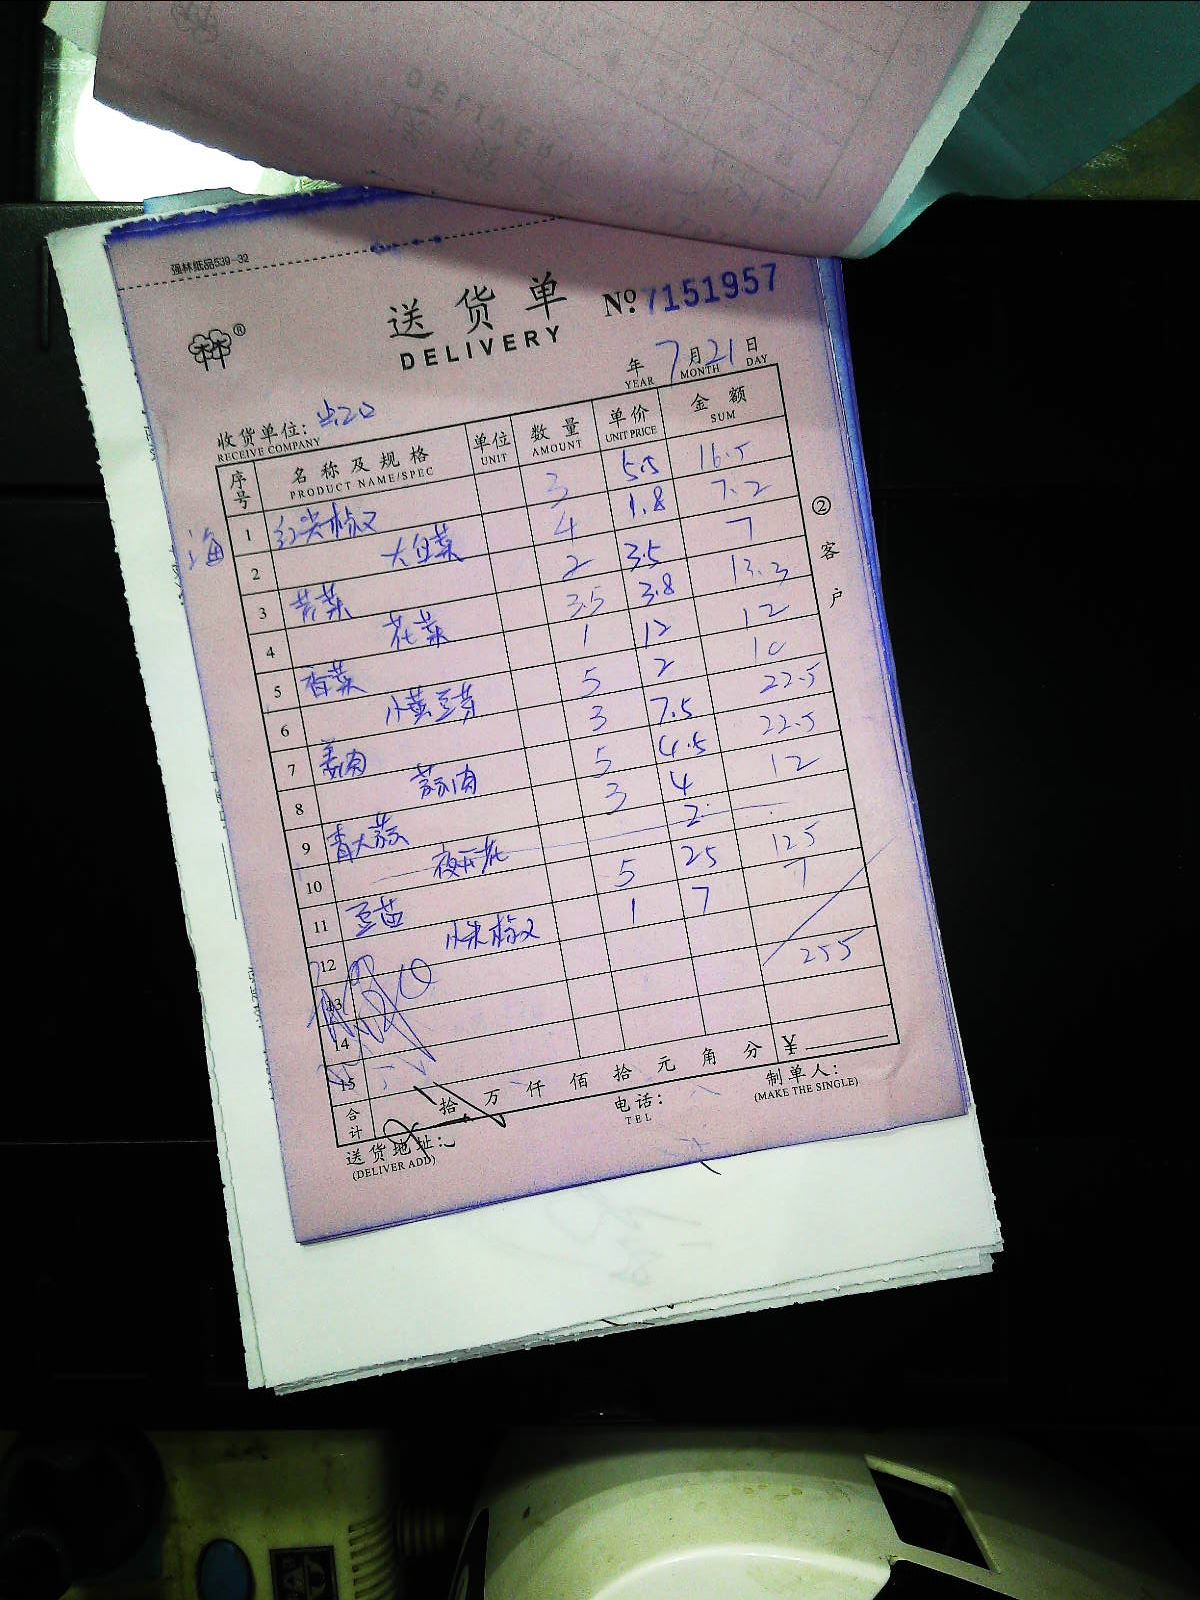 强林纸品539-32
送货单 Nº 7151957
DELIVERY
年 7月21日
YEAR MONTH DAY
收货单位:
RECEIVE COMPANY
序号 名称及规格 单位 数量 单价 金额
PRODUCT NAME/SPEC UNIT AMOUNT UNIT PRICE SUM
1 红尖椒 3 5.5 16.5
2 大白菜 4 1.8 7.2
3 苦菜 2 3.5 7
4 花菜 3.5 3.8 13.3
5 香菜 1 12 12
6 小黄豆芽 5 2 10
7 姜肉 3 7.5 22.5
8 蒜肉 5 4.5 22.5
9 青大蒜 3 4 12
10 夜开花 2
11 豆苗 5 25 125
12 小米椒 1 7 7
13 255
14
15
合计 拾 万 仟 佰 拾 元 角 分 ¥
送货地址: 电话: 制单人:
(DELIVER ADD) TEL (MAKE THE SINGLE)
②客户
海